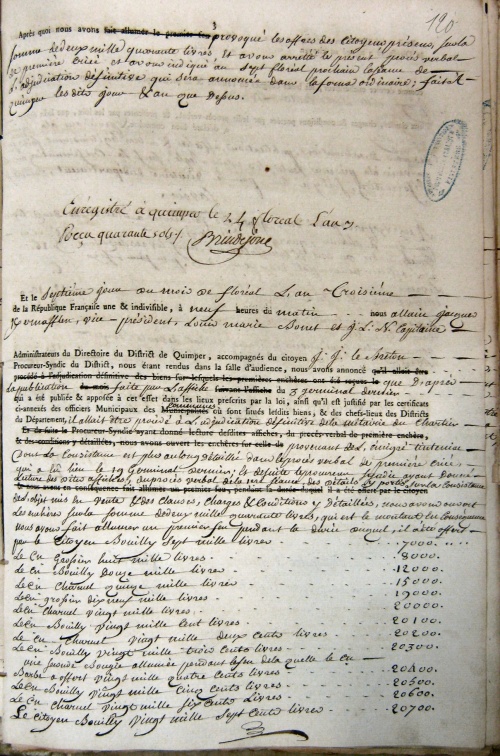 3
190
Après quoi nous avons fait allumer le premier feu provoqué les offres des Citoyens présens, sur la
somme de deux mille quarante livres Et avons arrêté le présent procès verbal
de première criée et avons indiqué au Sept floréal prochain
L'adjudication définitive qui sera annoncée dans la forme ordinaire; fait à
quimper les dits jour & an que dessus.
Enregistré à quimper le 24 floréal L'an 3
Reçu quarante sols
Et le Septième jour du mois de floréal L'an Troisième
de la République Française une & indivisible, à neuf heures du matin nous allain jacques
vice président, Louis marie Bonet et J. L. N. Capitaine
Administrateurs du Directoire du District de Quimper, accompagnés du citoyen J. J. le Breton
Procureur-Syndic du District, nous étant rendus dans la salle d'audience, nous avons annoncé qu'il allait être
procédé à l'adjudication définitive des biens sur lesquels les premières enchères ont été reçues le que D'après
La publication du mois faite par L'affiche suivant l'affiche du 3 germinal dernier
qui a été publiée & apposée à cet effet dans les lieux prescrits par la loi, ainsi qu'il est justifié par les certificats
ci-annexés des officiers Municipaux des Municipalités communes où sont situés lesdits biens, & des chefs-lieux des Districts
du Département, il allait être procédé à L'adjudication définitive de la métairie du Chartier
Et de suite le Procureur-Syndic ayant donné lecture desdites affiches, du procès-verbal de première enchère,
& des conditions y détaillées, nous avons ouvert les enchères sur celle de provenant de L'émigré tinteniac
Dont La Consistance est plus au long détaillée dans le procès verbal de première criée
qui a eu lieu le 19 Germinal dernier; Et desuite le procureur Syndic ayant donné
Lecture des dites affiches, du procès verbal de la 1ere criée, des détails y portés sur la Consistance
& nous avons en conséquence fait allumer un premier feu, pendant la durée duquel il a été offert par le citoyen
des objets mis en Vente & des Clauses, Charges & Conditions y détaillées, nous avons ouvert
Les enchères sur la somme de deux mille quarante livres, qui est le montant de la soumission
nous avons fait allumer un premier feu pendant la durée duquel il a été offert
par le Citoyen Bouilly Sept mille livres 7000.
Le Cn Grossin huit mille livres 8000.
Le Cn Bouilly Douze mille livres 12000
Le Cn Charuel quinze mille livres 15000
Le Cn grossin dix neuf mille livres 19000
Le Cn Charuel vingt mille livres 20000.
Le Cn Bouilly vingt mille Cent livres 20100.
Le Cn Charuel vingt mille deux Cents livres 20200.
Le Cn Bouilly vingt mille trois Cents livres 20300.
une seconde Bougie allumée pendant le feu de la quelle le Cn
Barbe a offert vingt mille quatre Cents livres 20400.
Le Cn Bouilly vingt mille Cinq Cents livres 20500.
Le Cn Charuel vingt mille six Cents Livres 20600.
Le Citoyen Bouilly vingt mille Sept Cents livres 20700.